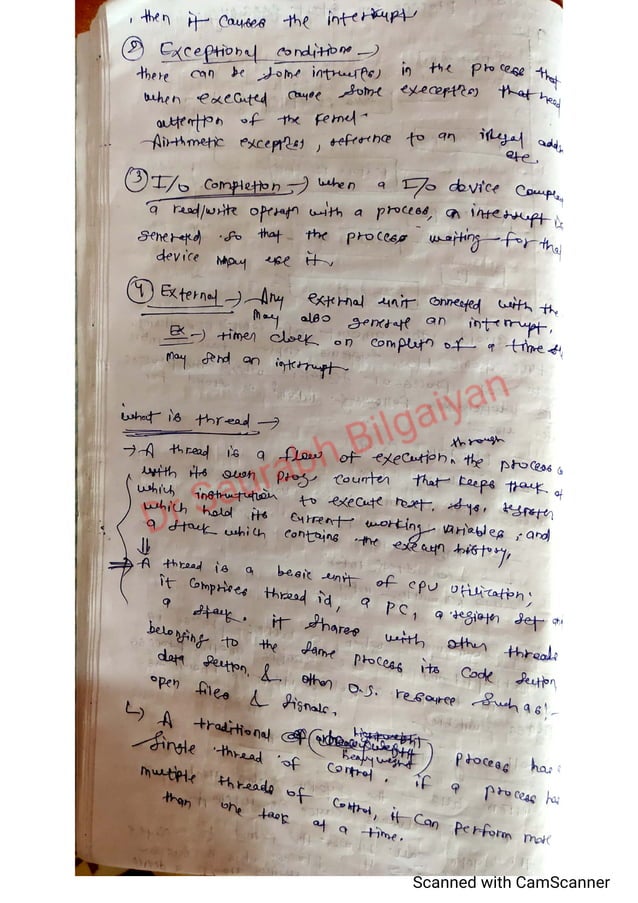 , then it causes the interrupt
② Exceptional conditions →
there can be some in the process that
when executed cause some that need
attention of the kernel
Airthmetic , reference to an illegal
etc.
③ I/O completion → when a I/O device
a read/write operatn with a process, an interrupt is
generated so that the process waiting for that
device may use it.
④ External → Any external unit connected with the
may also generate an interrupt.
Ex → timer clock on complétn of a time
may send an interrupt
what is thread →
→ A thread is a flow of execution through the process
with its own prog counter that keeps track of
which instruction to execute next. sys. register
which hold its current working variables, and
a stack which contains the history.
⇓
⇒ A thread is a basic unit of CPU utilization;
it comprises thread id, a PC, a register set
a stack. it shares with other threads
belonging to the same process its code section
data section & other O.S. resource such as:-
open files & signals.
↳ A traditional (heavyweight) process has
single thread of control. if a process has
multiple threads of control, it can perform more
than one task at a time.
Dr Saurabh Bilgaiyan
Scanned with CamScanner